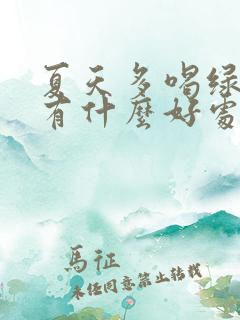 夏天多喝绿
有什麼好處
馬征
未经同意禁止转载